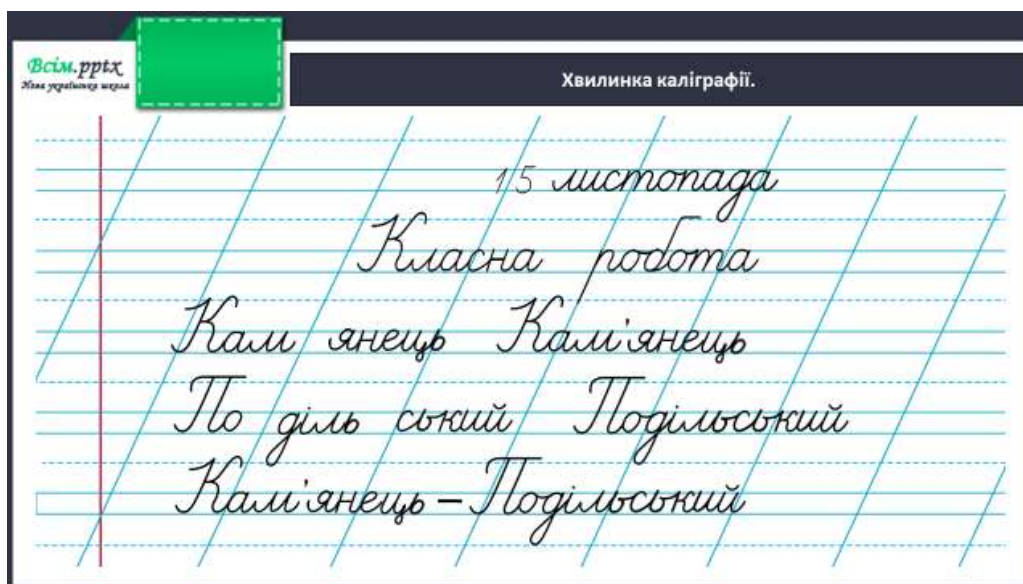 Всім.pptx
Нова українська школа
Хвилинка каліграфії.
15 листопада
Класна робота
Кам янець Кам'янець
По діль ський Подільський
Кам'янець – Подільський